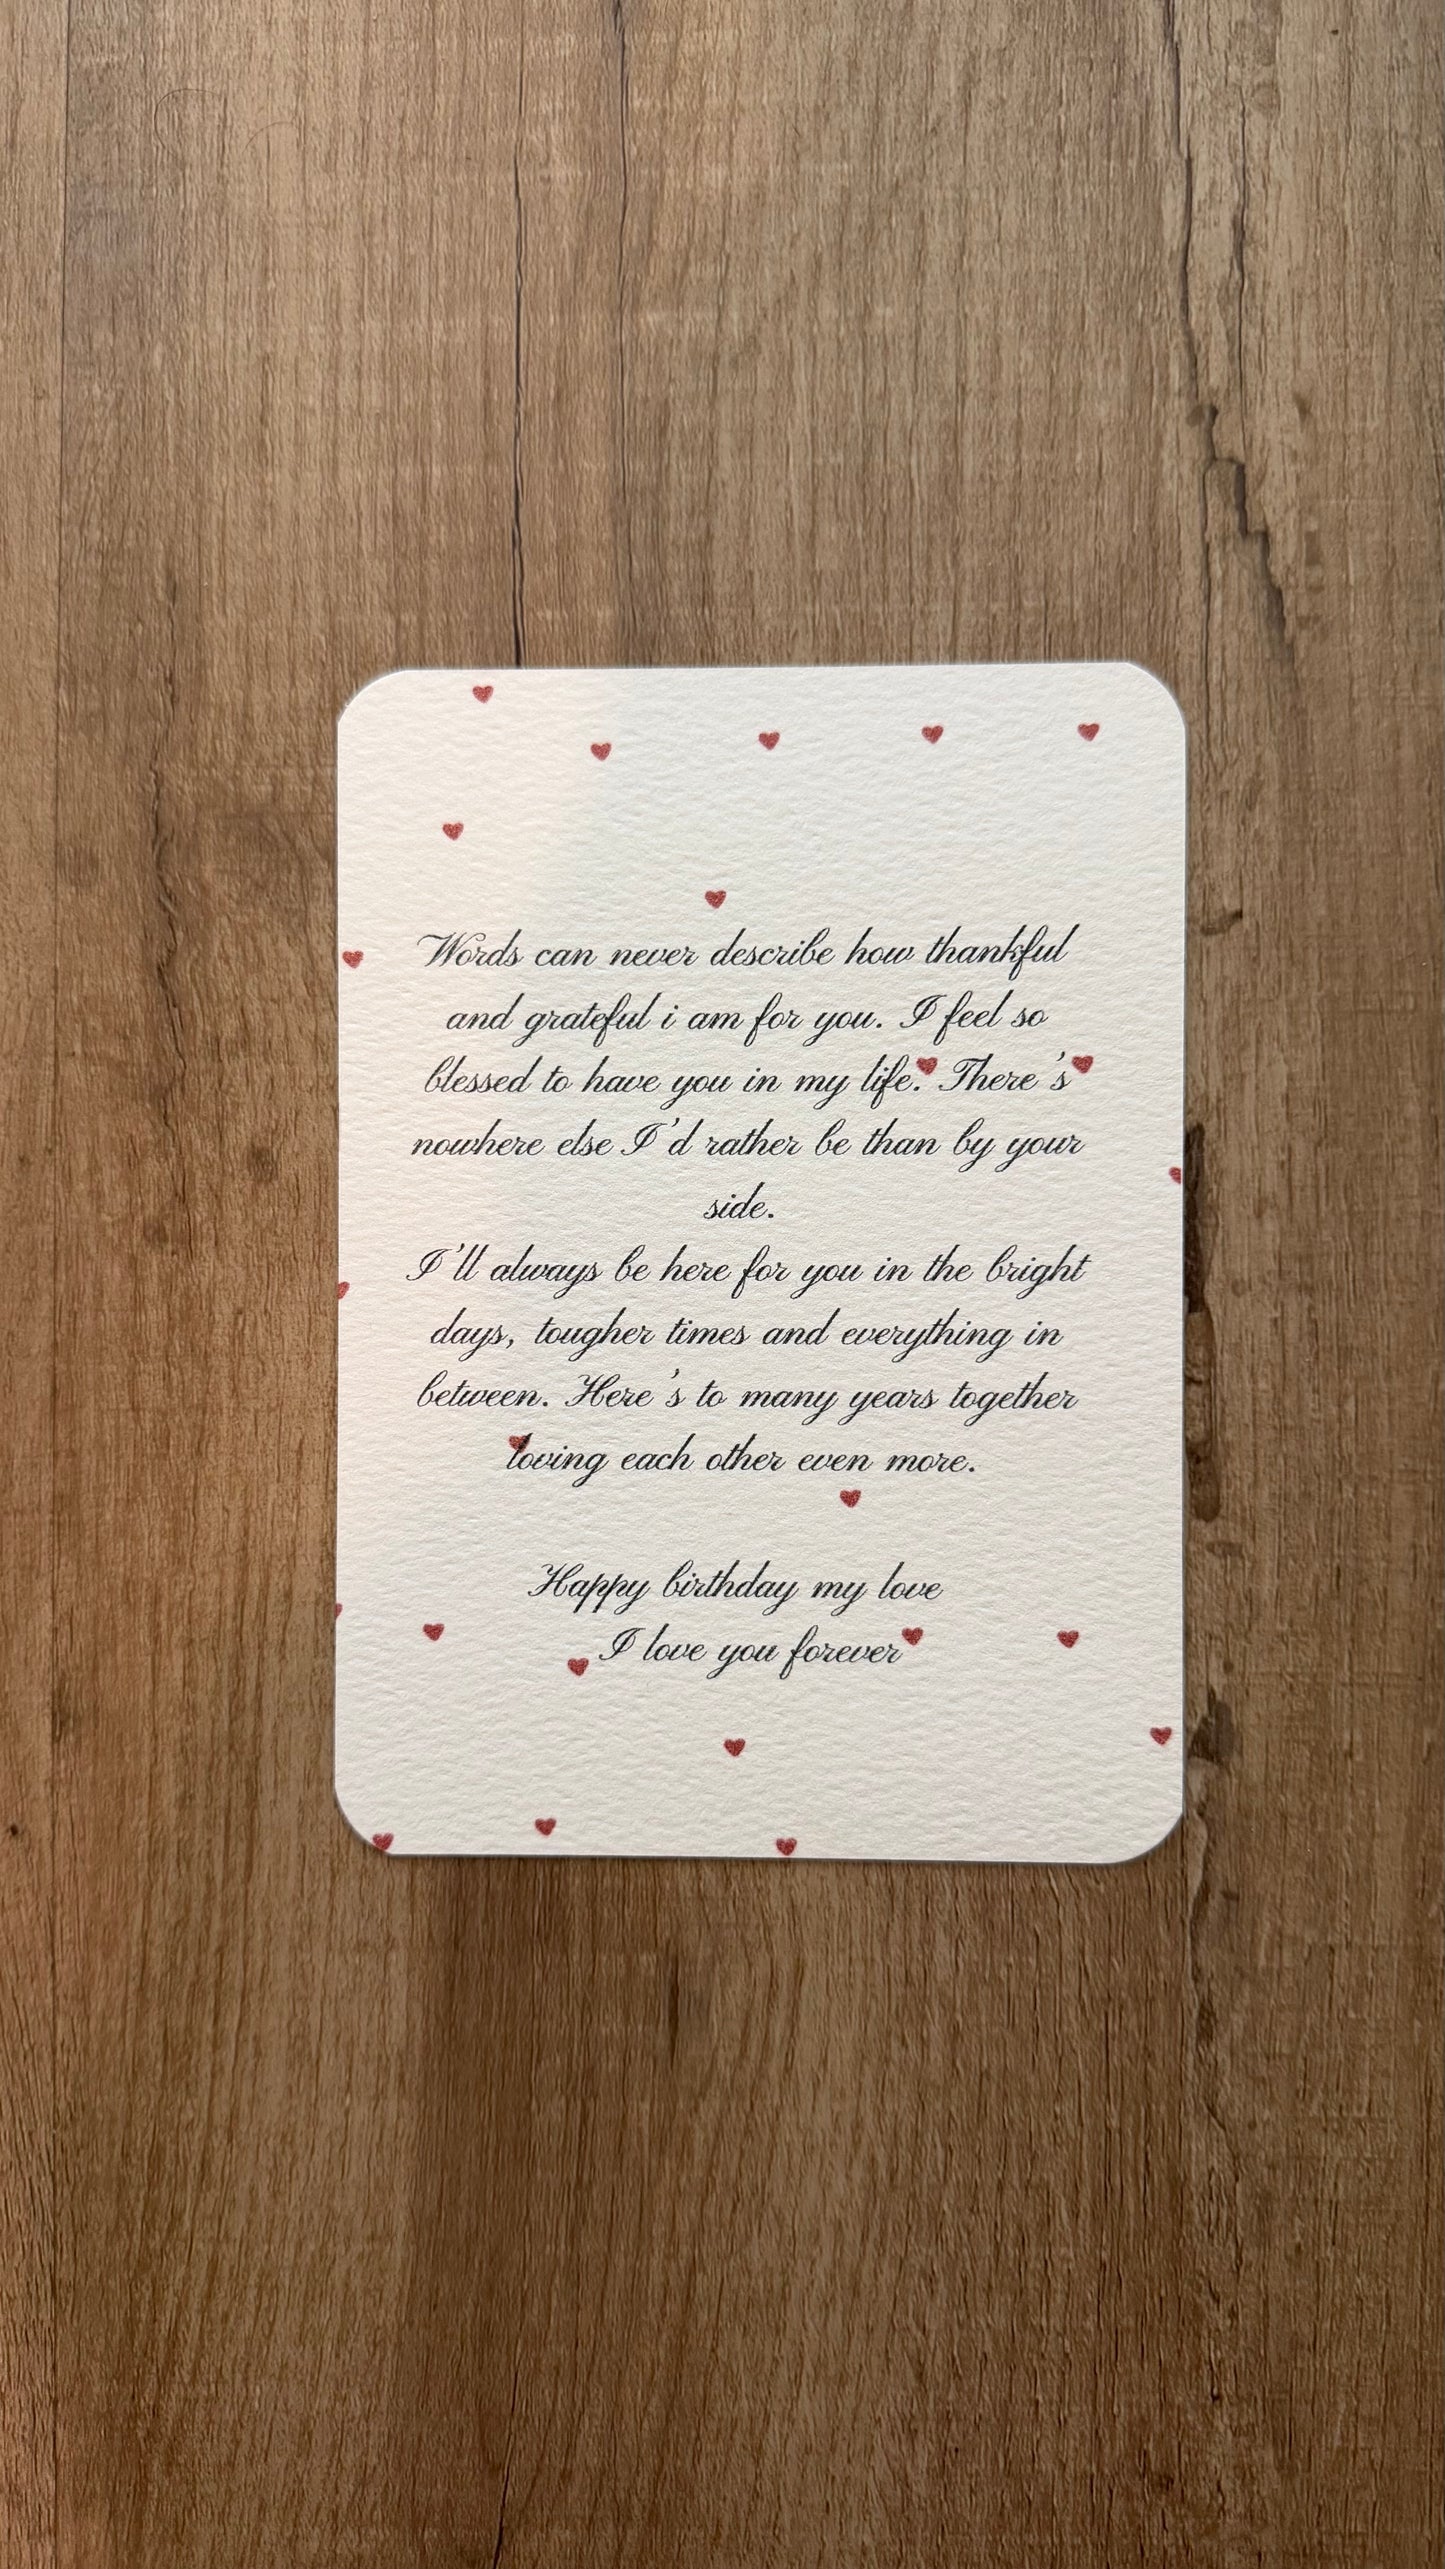 Words can never describe how thankful
and grateful i am for you. I feel so
blessed to have you in my life. There's
nowhere else I'd rather be than by your
side.
I'll always be here for you in the bright
days, tougher times and everything in
between. Here's to many years together
loving each other even more.
Happy birthday my love
I love you forever